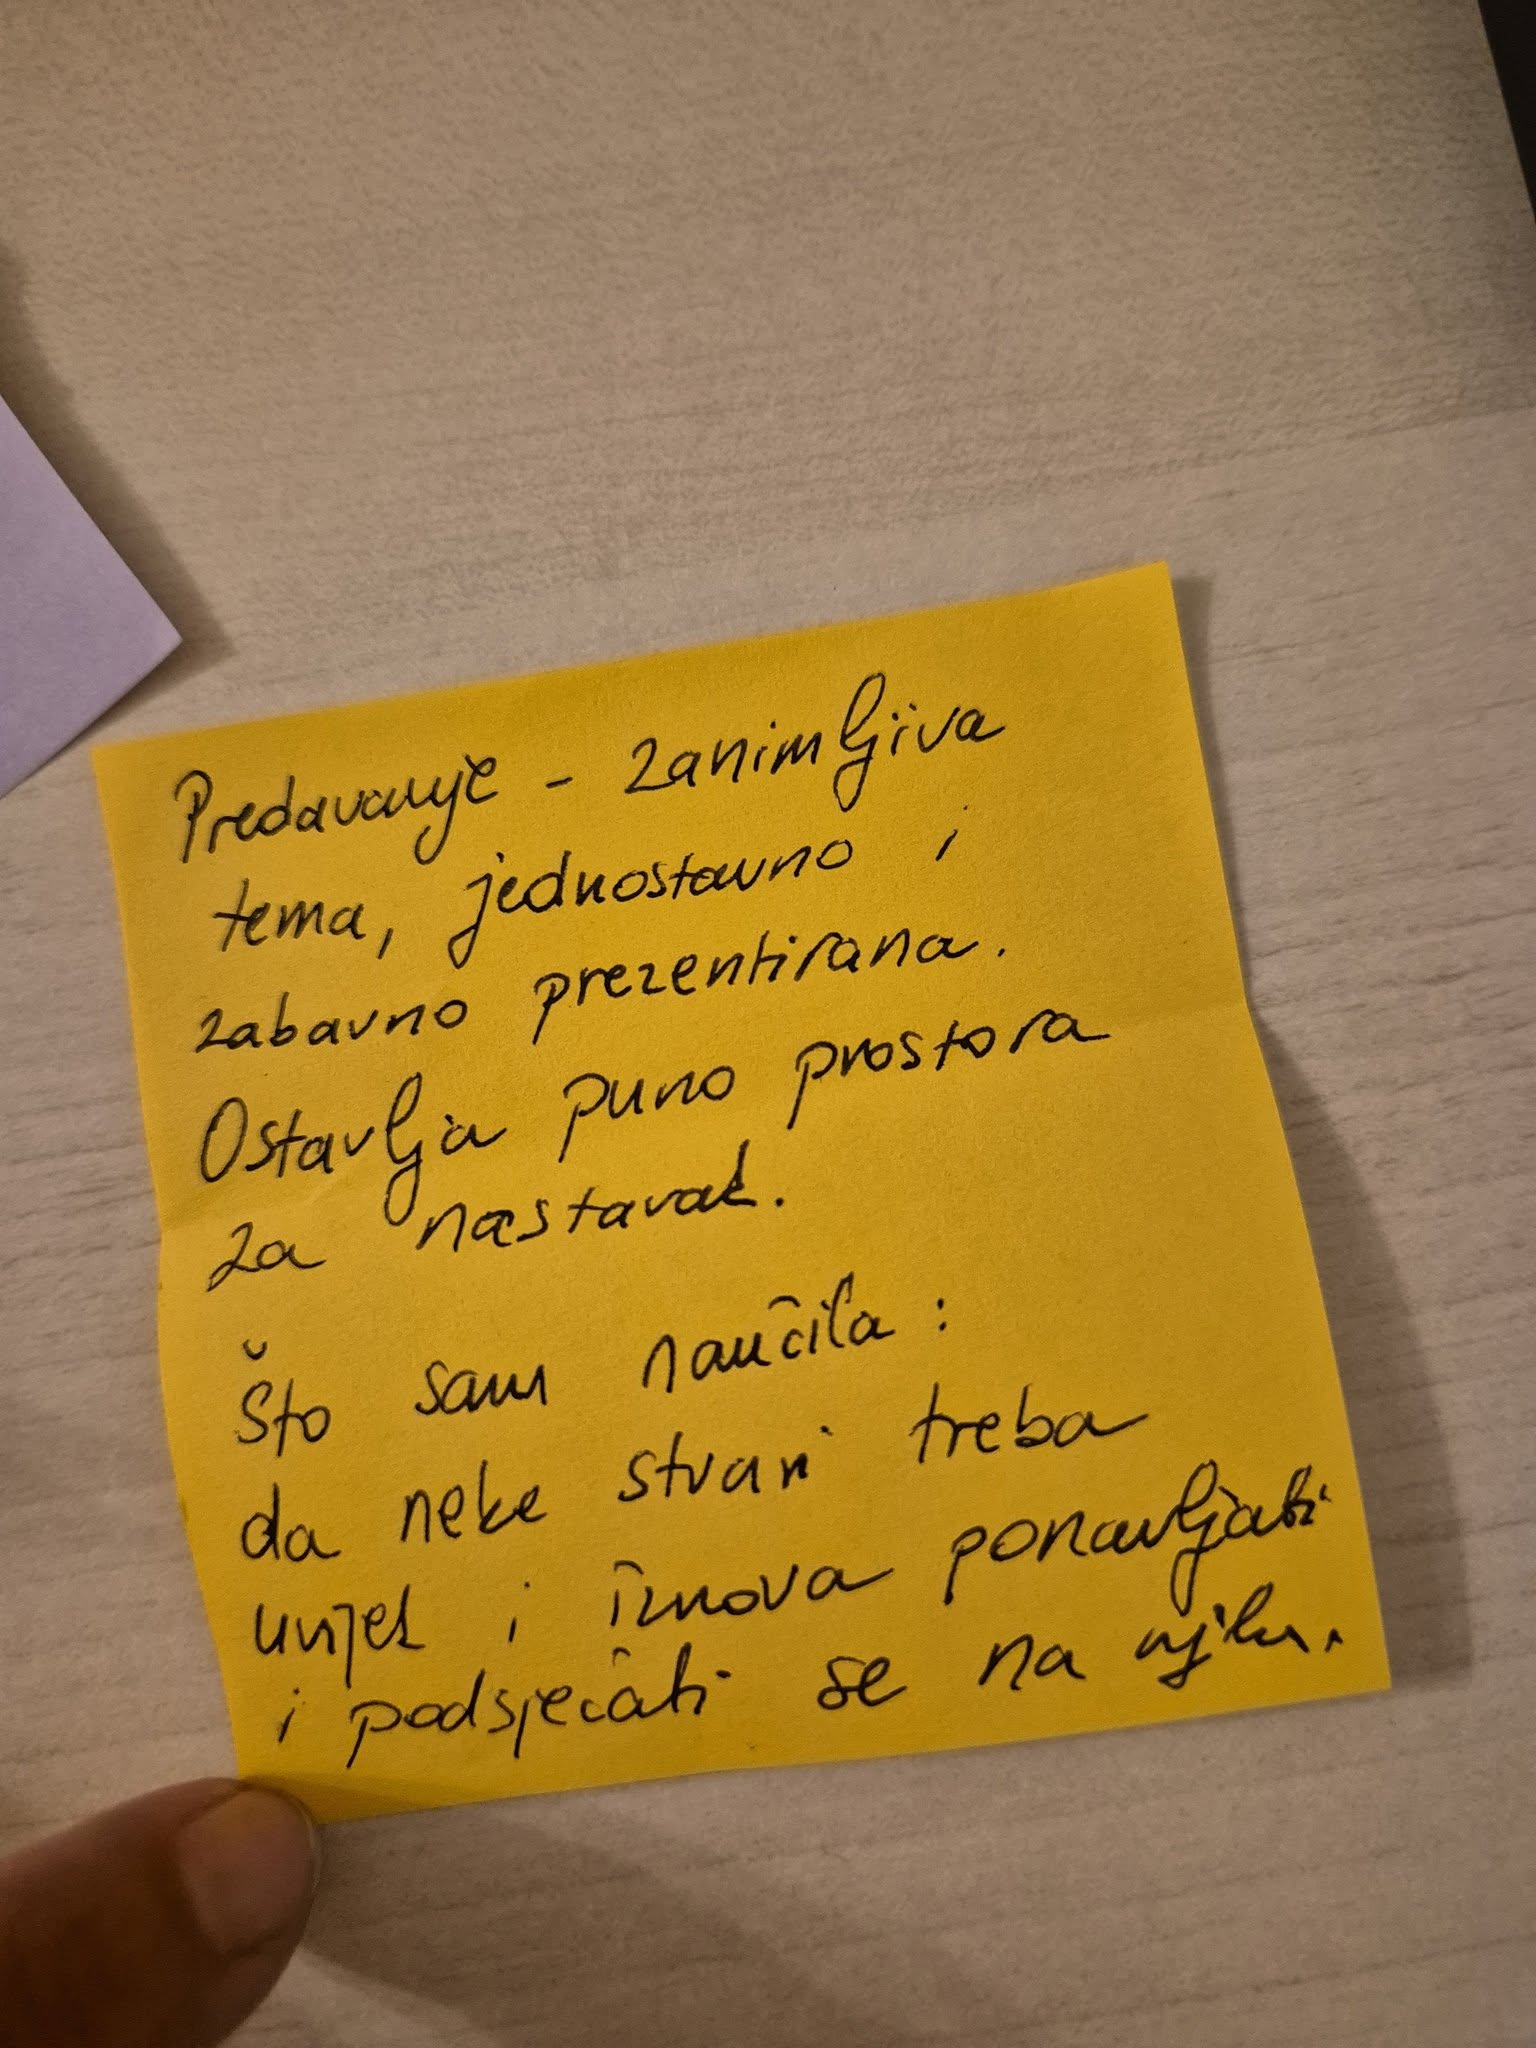 Predavanje - zanimljiva
tema, jednostavno i
zabavno prezentirana.
Ostavlja puno prostora
za nastavak.
Što sam naučila:
da neke stvari treba
uvijek i iznova ponavljati
i podsjećati se na njih.